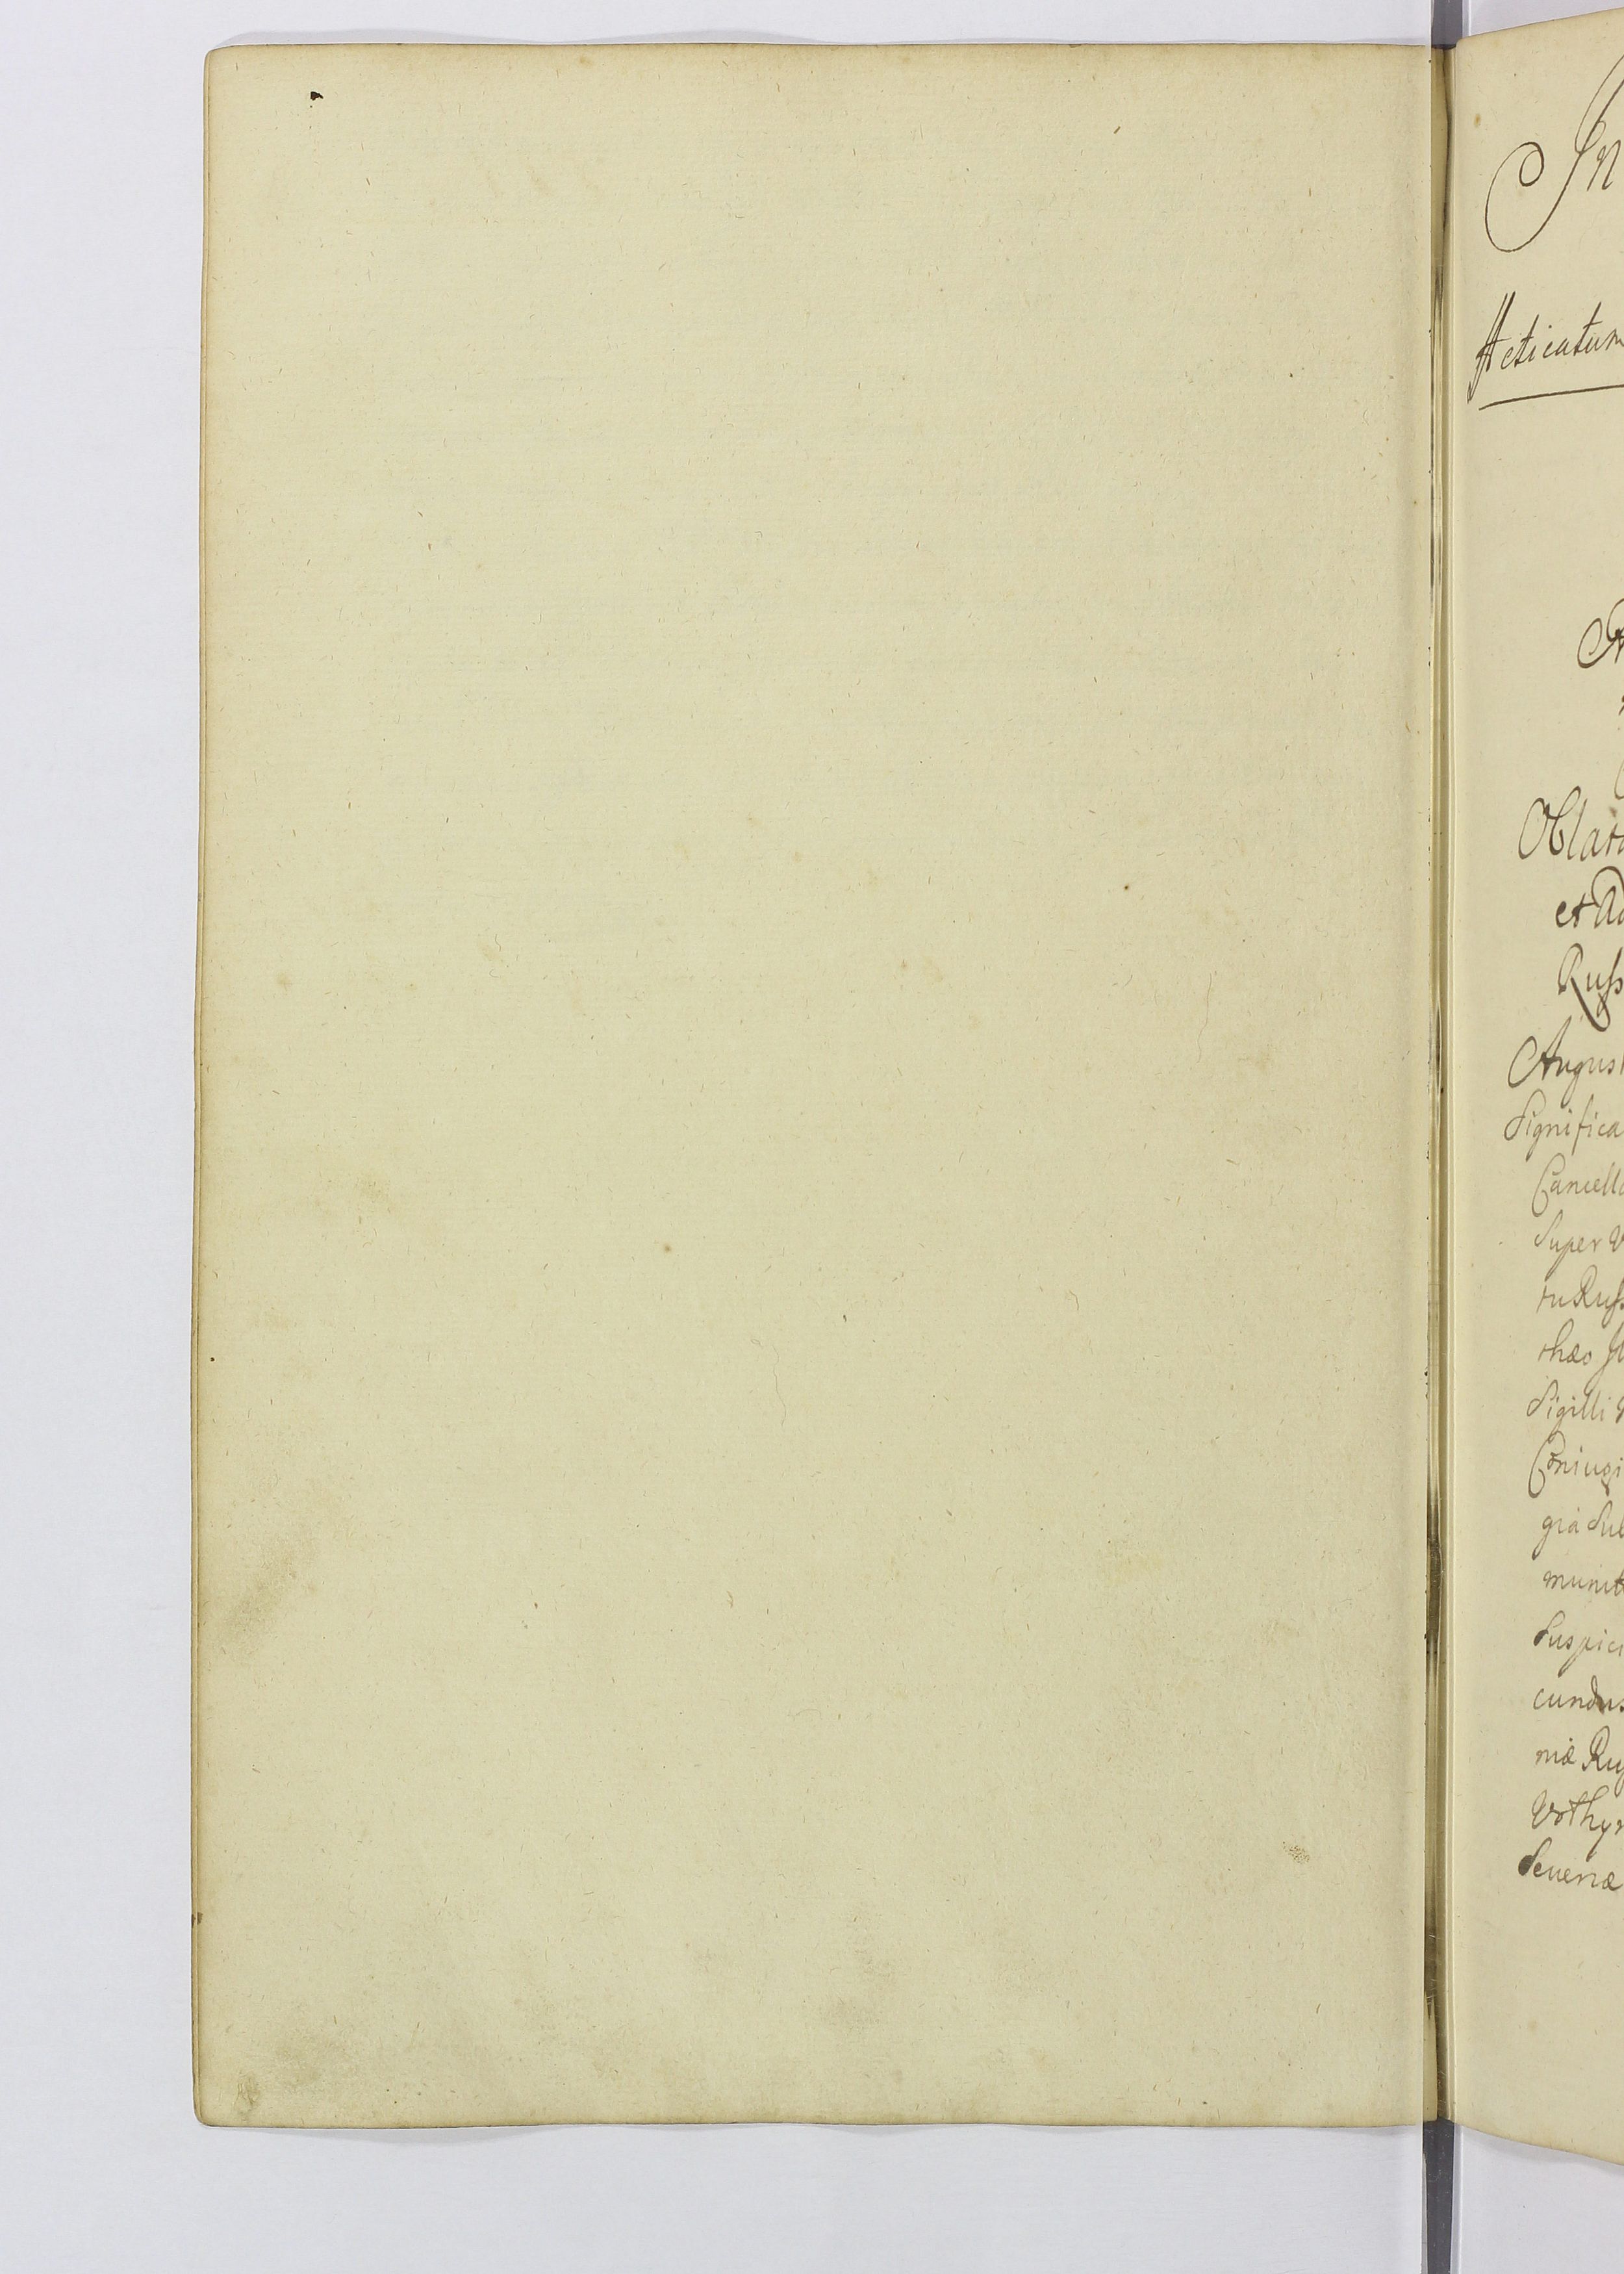 In
Acticatum
Oblata
et Ad
Russ
August
Significa
Cancella
Super V
tu Russ
thæo
Sigilli
Coniugi
gia Sub
munit
Suspici
cundus
niæ Rus
Vothyn
Seueriæ